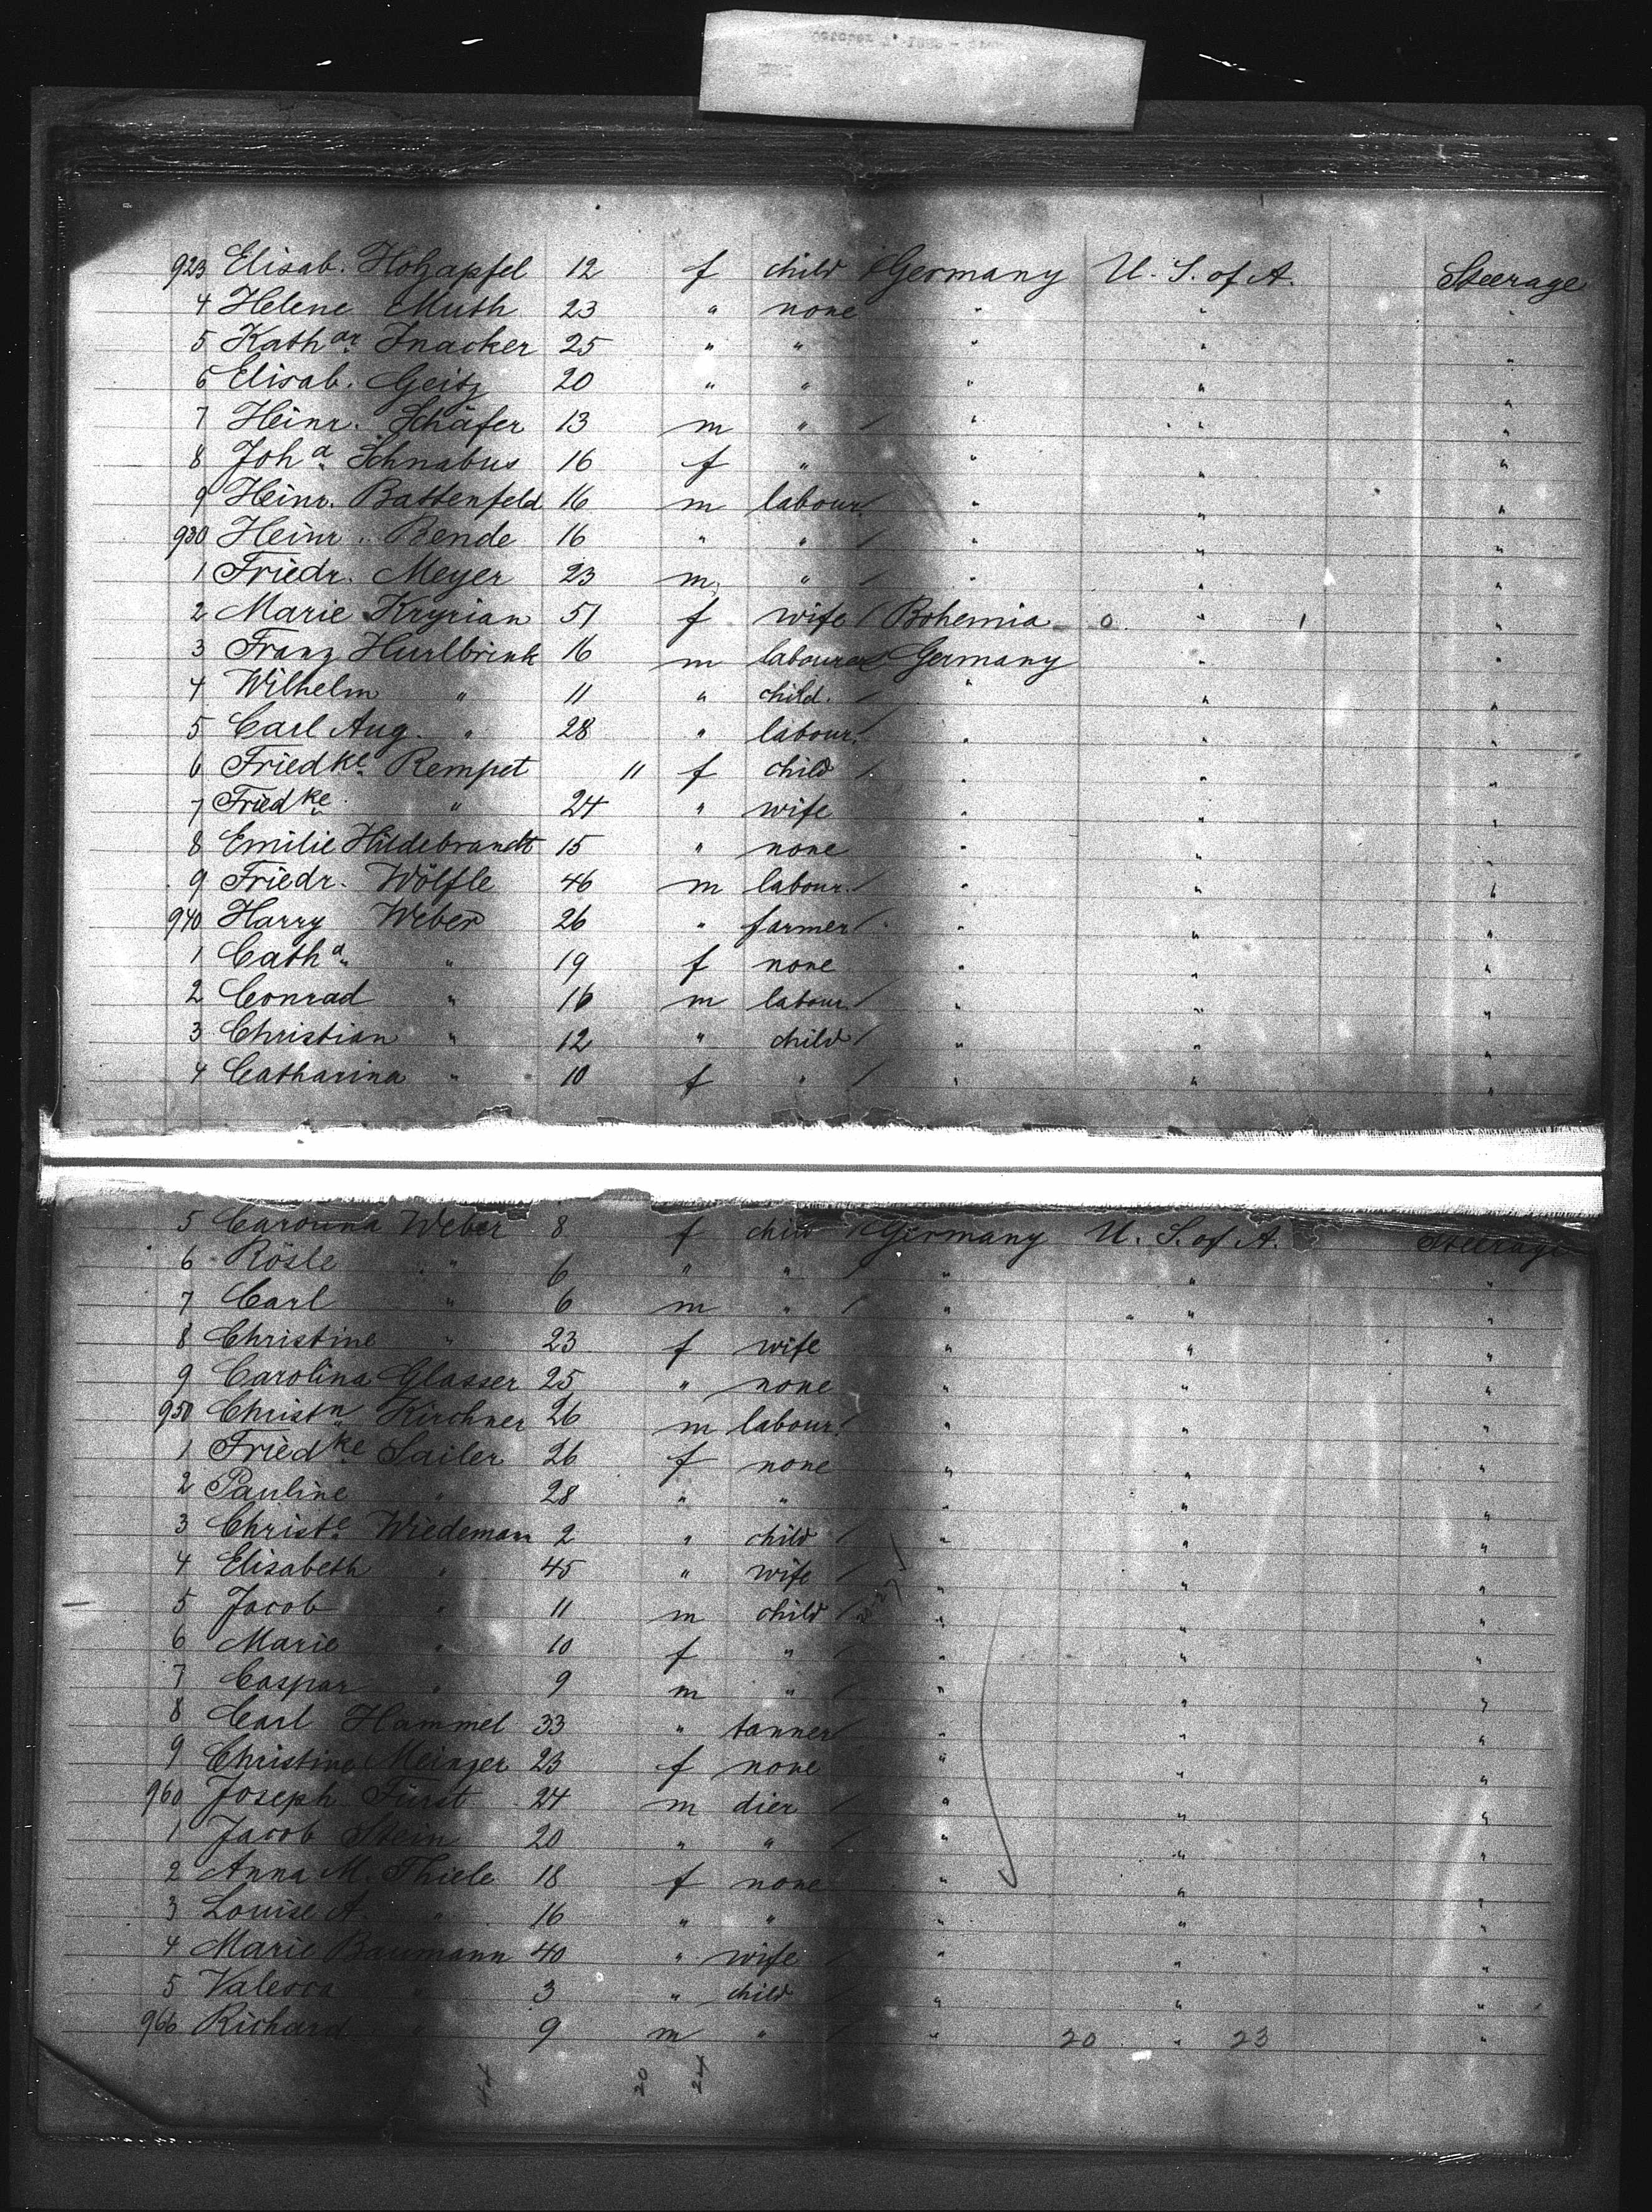 923 Elisab. Holzapfel 12 f child / Germany U. S. of A. Steerage
4 Helene Muth 23 " none " " "
5 Kathar. Inacker 25 " " " " "
6 Elisab. Geitz 20 " " " " "
7 Heinr. Schäfer 13 m " / " " "
8 Joha. Schnabus 16 f " " " "
9 Heinr. Battenfeld 16 m labour. / " " "
930 Heinr. Bende 16 " " / " " "
1 Friedr. Meyer 23 m " / " " "
2 Marie Kryrian 51 f wife / Bohemia 0 " 1 "
3 Franz Hurlbrink 16 m labourer Germany " "
4 Wilhelm " 11 " child. / " " "
5 Carl Aug. " 28 " labour. / " " "
6 Friedke. Rempet 11 f child / " " "
7 Friedke. " 24 " wife " " "
8 Emilie Hildebrandt 15 " none " " "
9 Friedr. Wölfle 46 m labour. / " " "
940 Harry Weber 26 " farmer / " " "
1 Catha. " 19 f none " " "
2 Conrad " 16 m labour / " " "
3 Christian " 12 " child / " " "
4 Catharina " 10 f " / " " "
5 Carolina Weber 8 f child / Germany U. S. of A. Steerage
6 Rösle " 6 " " / " " "
7 Carl " 6 m " / " " "
8 Christine " 23 f wife " " "
9 Carolina Glasser 25 " none " " "
950 Christn. Kirchner 26 m labour. / " " "
1 Friedke. Sailer 26 f none " " "
2 Pauline " 28 " " " " "
3 Christe. Wiedemann 2 " child / " " "
4 Elisabeth " 45 " wife / " " "
5 Jacob " 11 m child / " " "
6 Marie " 10 f " / " " "
7 Caspar " 9 m " / " " "
8 Carl Hammel 33 " tanner / " " "
9 Christine Meinzer 23 f none " " "
960 Joseph Fürst 24 m dier / " " "
1 Jacob Stein 20 " " / " " "
2 Anna M. Thiele 18 f none " " "
3 Louise A. " 16 " " " " "
4 Marie Baumann 40 " wife / " " "
5 Valesca " 3 " child / " " "
966 Richard " 9 m " / " 20 " 23 "
44 20 24